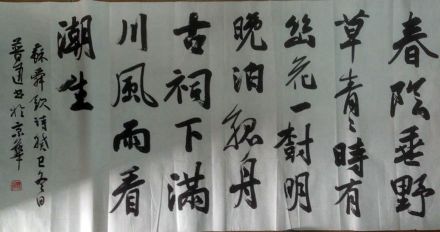 春陰垂野
草青々時有
幽花一樹明
晚泊孤舟
古祠下滿
川風雨看
潮生
蘇舜欽詩癸巳冬日
書於京華